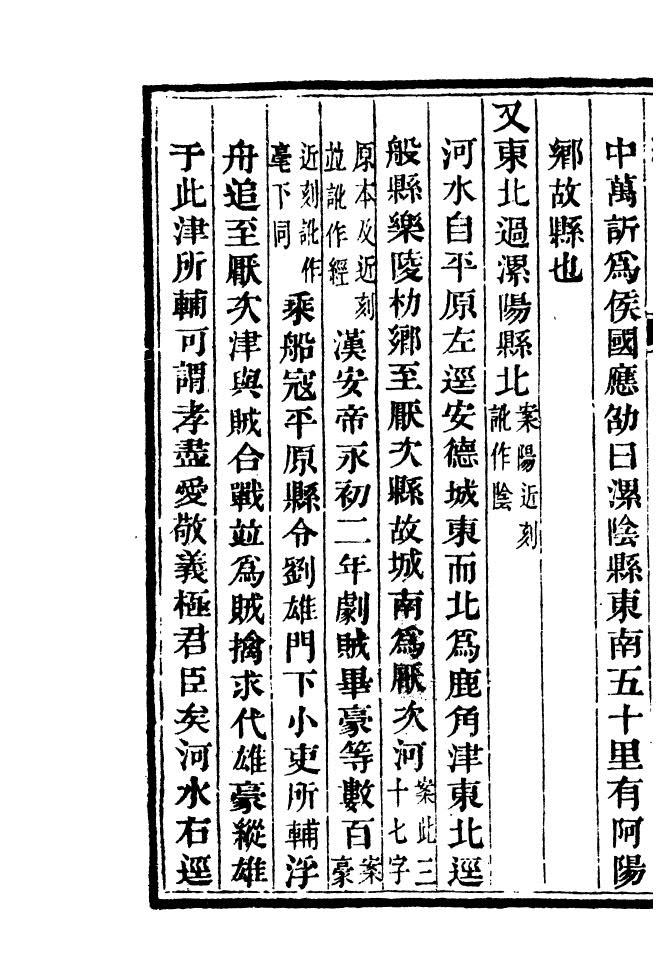 中萬訢爲侯國應劭曰漯陰縣東南五十里有阿陽
鄉故縣也
又東北過漯陽縣北案陽近刻訛作陰
河水自平原左逕安德城東而北爲鹿角津東北逕
般縣樂陵朸鄉至厭次縣故城南爲厭次河案此三十七字
原本及近刻並訛作經漢安帝永初二年劇賊畢豪等數百案豪
近刻訛作毫下同乘船寇平原縣令劉雄門下小吏所輔浮
舟追至厭次津與賊合戰並爲賊擒求代雄豪縱雄
于此津所輔可謂孝盡愛敬義極君臣矣河水右逕